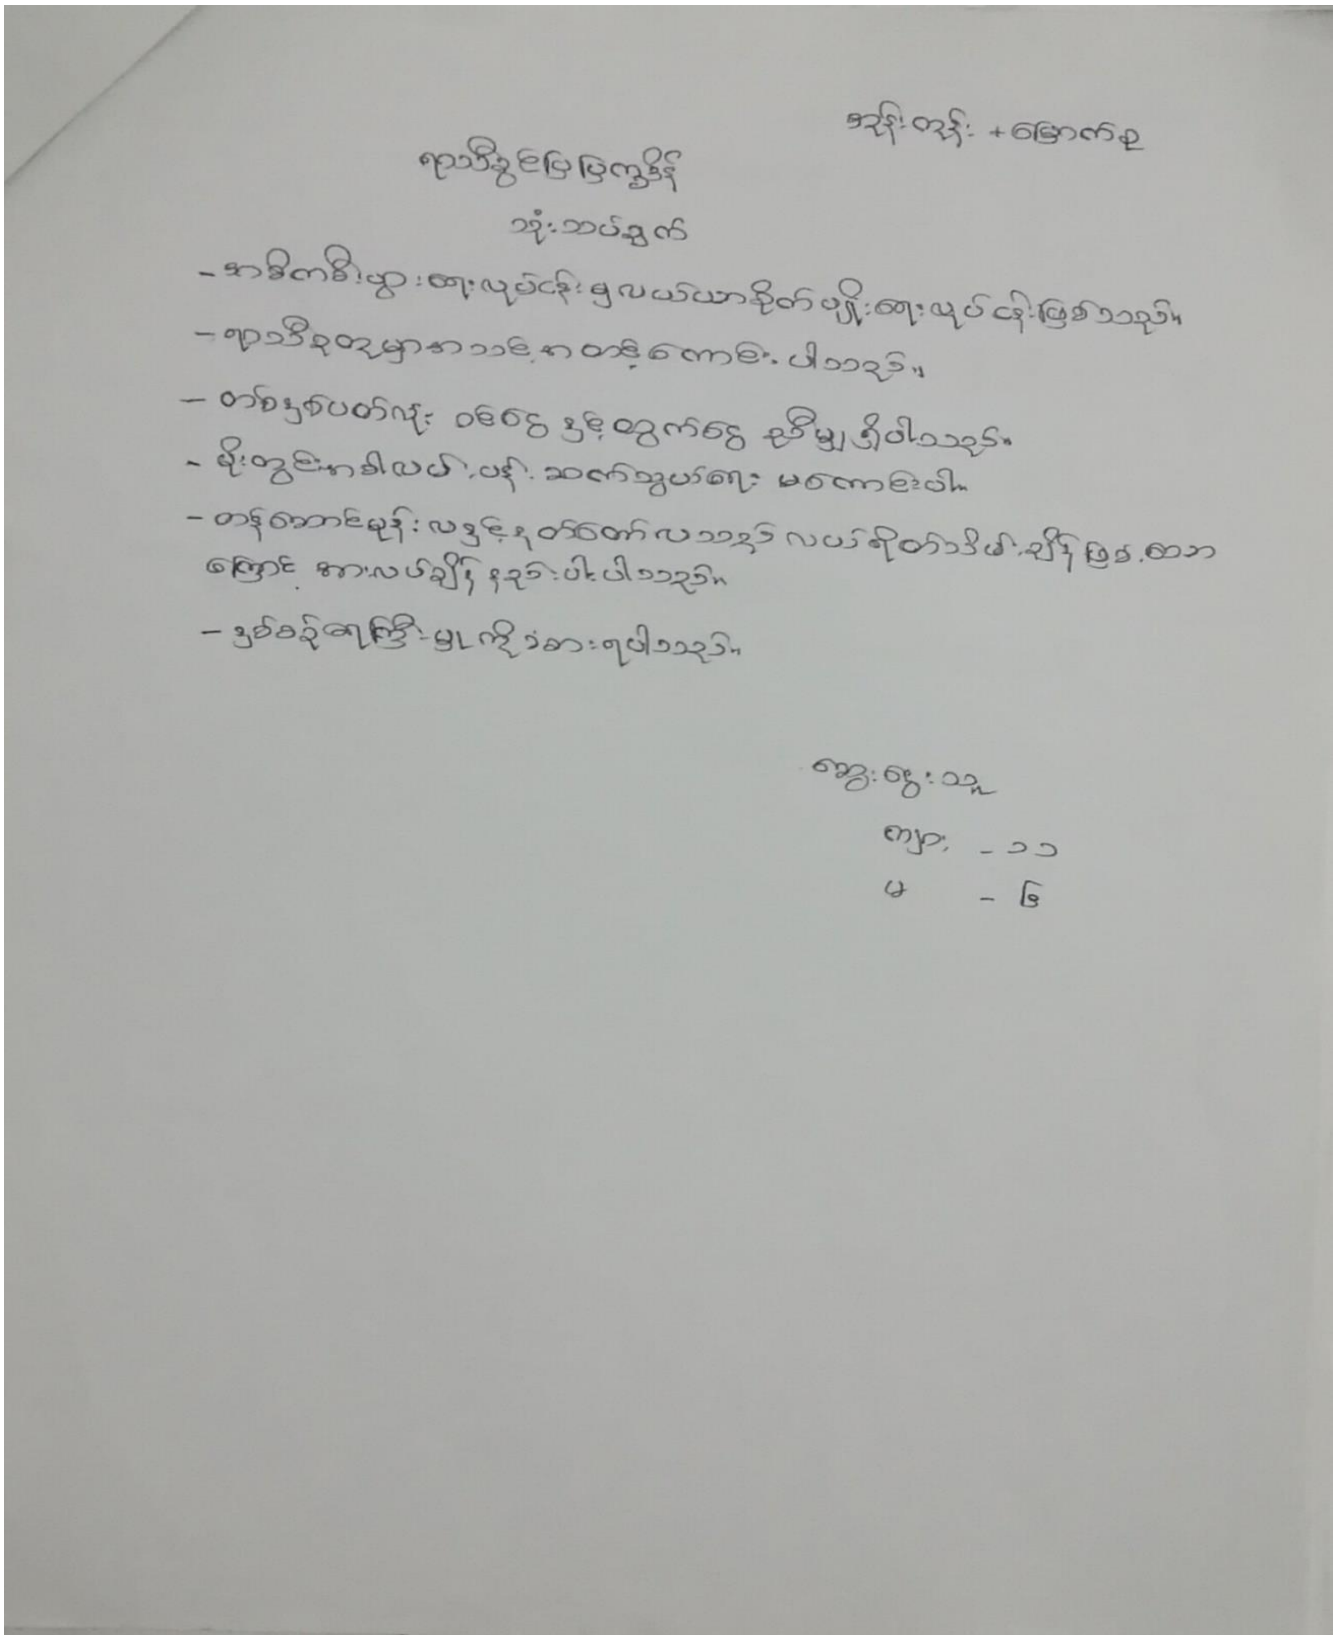 အုန်းတုန်း + မြောက်စု
ရာသီခွင်ပြပြက္ခဒိန်
သုံးသပ်ချက်
- အဓိကစီးပွားရေးလုပ်ငန်းမှလယ်ယာစိုက်ပျိုးရေးလုပ်ငန်းဖြစ်သည်။
- ရာသီဥတုမှာအသင့်အတင့်ကောင်းပါသည်။
- တစ်နှစ်ပတ်လုံး ဝင်ငွေ နှင့်ထွက်ငွေ ညီမျှရှိပါသည်။
- မိုးတွင်းအခါလမ်းပန်းဆက်သွယ်ရေး မကောင်းပါ။
- တန်ဆောင်မုန်းလနှင့်နတ်တော်လသည် လယ်ရိတ်သိမ်းချိန်ဖြစ်သော
ကြောင့် အားလပ်ချိန် နည်းပါးပါသည်။
- နှစ်စဉ်ရေကြီးမှုကိုခံစားရပါသည်။
ဆွေးနွေးသူ
ကျား - ၁၁
မ - ၆